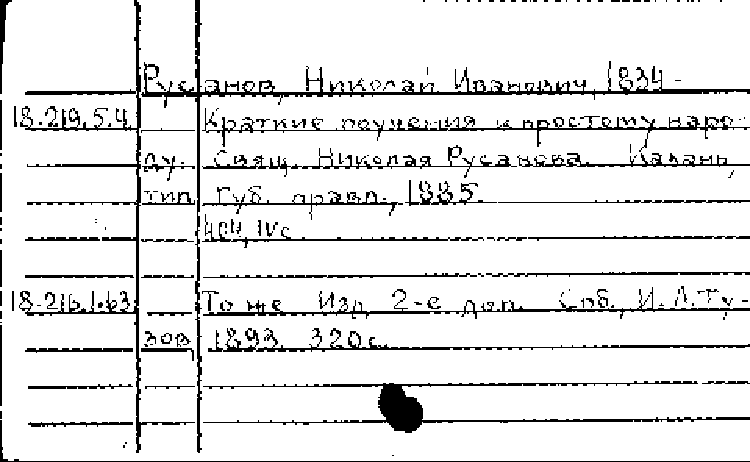 Русанов, Николай Иванович, 1834-
18.219.5.4 Краткие поучения к простому наро-
ду. Свящ. Николая Русанова. Казань,
тип. Губ. правл., 1885.
404, IV с.
18.216.1.63 То же. Изд. 2-е доп. Спб., И.Л. Ту-
зов, 1893. 320 с.